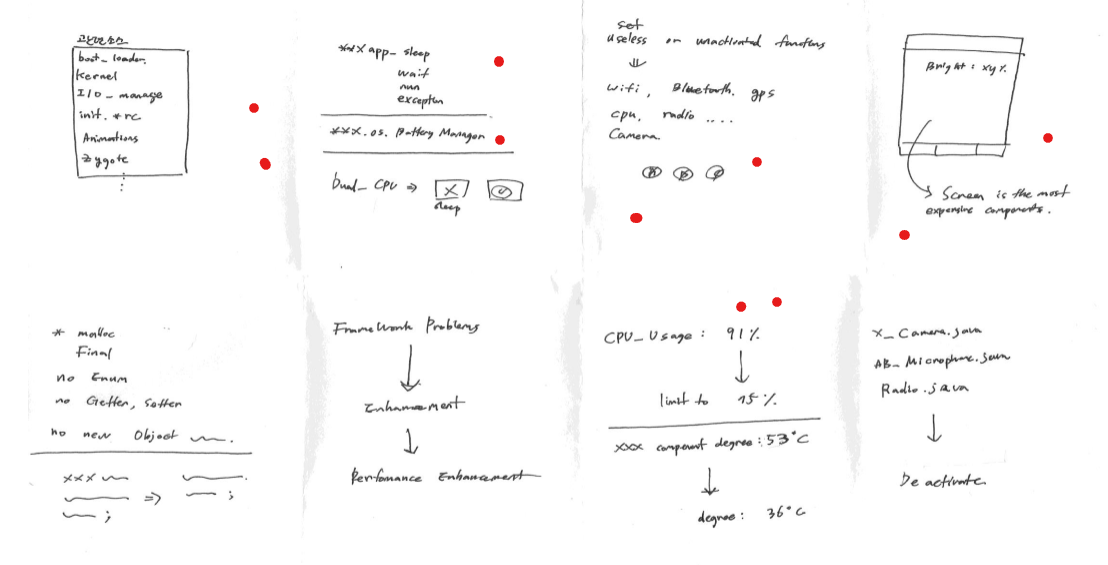 boot_loader.
Kernel
I/O_manage
init.*rc
Animations
Zygote
***app_sleep
wait
run
***.os.Battery Manager
CPU ⇒
sleep
set
useless or unactivated
⇓
wifi, Bluetooth. gps
cpu, radio ....
Camera.
Bright: xy%
Screen is the most
expensive components.
* malloc
Final
no Enum
no Getter, Setter
no new Object
xxx
⇒
;
;
FrameWork Problems
↓
Enhancement
↓
Performance Enhancement
CPU_Usage: 91%
↓
limit to 15%
xxx component degree: 53°C
↓
degree: 36°C
X_Camera.java
AB_Microphone.java
Radio.java
↓
De activate